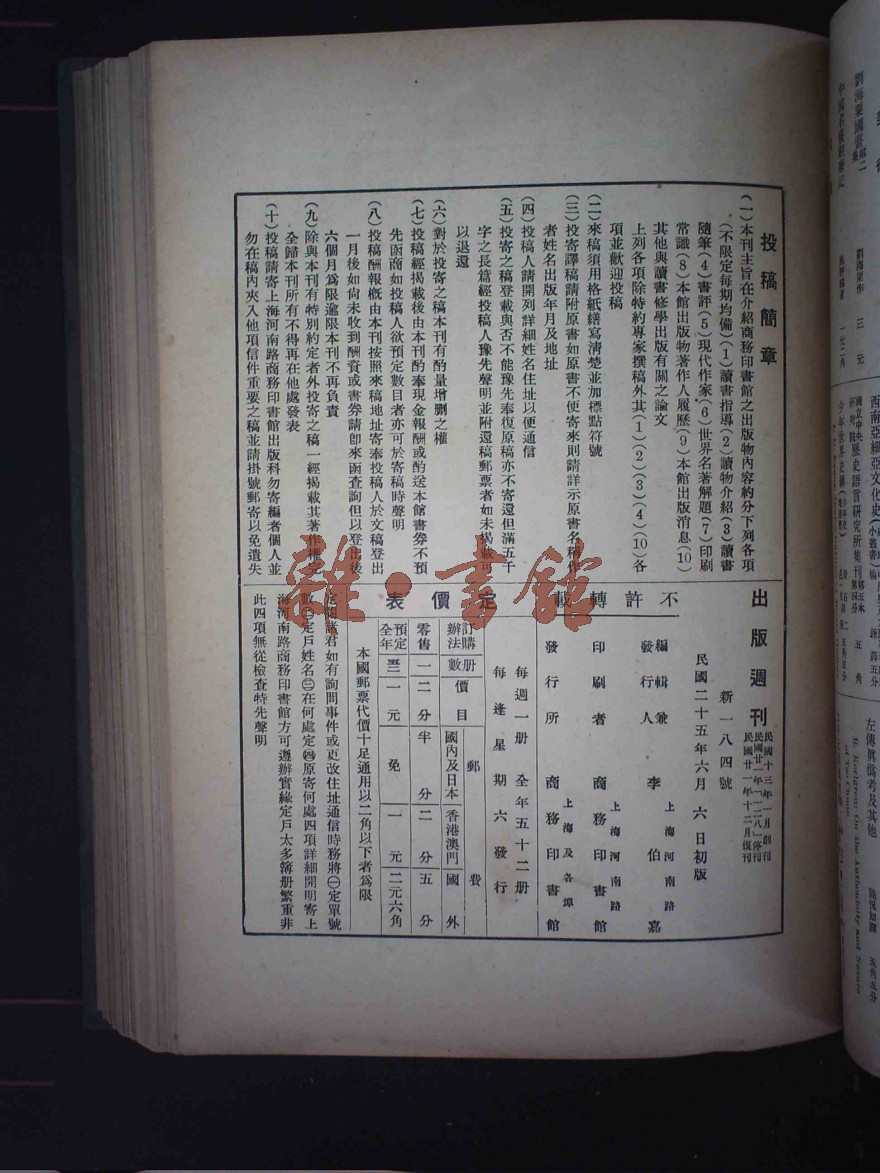 投稿簡章
（一）本刊主旨在介紹商務印書館之出版物內容約分下列各項
（不限定每期均備）（1）讀書指導（2）讀物介紹（3）讀書
隨筆（4）書評（5）現代作家（6）世界名著解題（7）印刷
常識（8）本館出版物著作人履歷（9）本館出版消息（10）
其他與讀書修學出版有關之論文
上列各項除特約專家撰稿外其（1）（2）（3）（4）（10）各
項並歡迎投稿
（二）來稿須用格紙繕寫清楚並加標點符號
（三）投寄譯稿請附原書如原書不便寄來則請詳示原書名稱作
者姓名出版年月及地址
（四）投稿人請開列詳細姓名住址以便通信
（五）投寄之稿登載與否不能豫先奉復原稿亦不寄還但滿五千
字之長篇經投稿人豫先聲明並附還稿郵票者如未揭載可
以退還
（六）對於投寄之稿本刊有酌量增删之權
（七）投稿經揭載後由本刊酌奉現金報酬或酌送本館書券不預
先函商如投稿人欲預定數目者亦可於寄稿時聲明
（八）投稿酬報概由本刊按照來稿地址寄奉投稿人於文稿登出
一月後如尙未收到酬資或書券請卽來函查詢但以登出後
六個月爲限逾限本刊不再負責
（九）除與本刊有特別約定者外投寄之稿一經揭載其著作權完
全歸本刊所有不得再在他處發表
（十）投稿請寄上海河南路商務印書館出版科勿寄編者個人並
勿在稿內夾入他項信件重要之稿並請掛號郵寄以免遺失
出版週刊
民國十三年一月創刊
民國廿一年「一二八」停刊
民國廿一年十二月復刊
新一八四號
民國二十五年六月六日初版
不許轉載
編輯兼發行人 李伯嘉
上海河南路
印刷者 商務印書館
上海河南路
發行所 商務印書館
上海及各埠
每週一册 全年五十二册
每逢星期六發行
定價表
訂購辦法 册數 價目 郵費
國內及日本 香港澳門 國外
零售 一 二分 半分 二分 五分
預定全年 五二 一元 免 一元 二元六角
本國郵票代價十足通用以二角以下者爲限
定閱諸君如有詢問事件或更改住址通信時務將㊀定單號
數㊁定戶姓名㊂在何處定㊃原寄何處四項詳細開明寄上
海河南路商務印書館方可遵辦實緣定戶太多簿册繁重非
此四項無從檢查特先聲明
劉海粟國畫 第二集 劉海粟作 三元
一元二角
西南亞細亞文化史
國立中央研究院 歷史語言研究所集刊 第五本第四分 五角
左傳眞僞考及其他 陸侃如譯 五角五分
B. Karlgren: On the Authenticity and Nature
of Tso Chuan
雜·書館